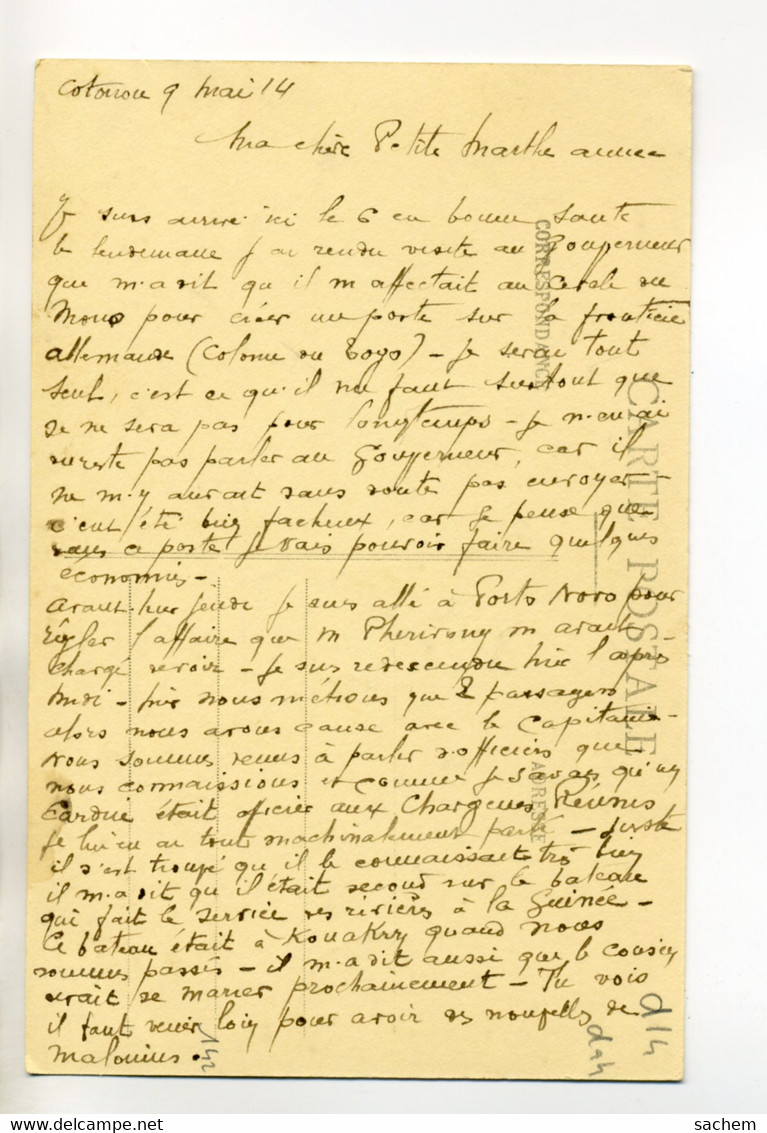 Cotonou 9 Mai 14
Ma chère Petite Marthe aimée
Je suis arrivé ici le 6 en bonne santé
le lendemain j'ai rendu visite au Gouverneur
que m'a dit qu'il m'affectait au Cercle du
Mono pour créer un poste sur la frontière
allemande (Colonie du Togo) - Je serai tout
seul, c'est ce qu'il me faut surtout que
je ne sera pas pour longtemps - Je n'en ai
du reste pas parler au Gouverneur, car il
ne m'y aurait sans doute pas envoyer -
c'eut été bien facheux, car je pense que
dans ce poste je vais pouvoir faire quelques
économies -
avant hier jeudi je suis allé à Porto Novo pour
régler l'affaire que M m'avait
chargé de voir - Je suis redescendu hier l'après
midi - nous n'étions que 2 passagers
alors nous avons causé avec le Capitaine -
Nous sommes venus à parler d'officiers que
nous connaissions et comme je savais qu'un
était officier aux Chargeurs Réunis
je lui en ai tout machinalement parlé - juste
il s'est trouvé qu'il le connaissait très bien
il m'a dit qu'il était second sur le bateau
qui fait le service des rivières à la Guinée -
Ce bateau était à Konakry quand nous
sommes passés - il m'a dit aussi que le cousin
devait se marier prochainement - Tu vois
il faut venir loin pour avoir des nouvelles de
Malouins.
CORRESPONDANCE
CARTE POSTALE
ADRESSE
142
d14
d94
sachem
delcampe.net